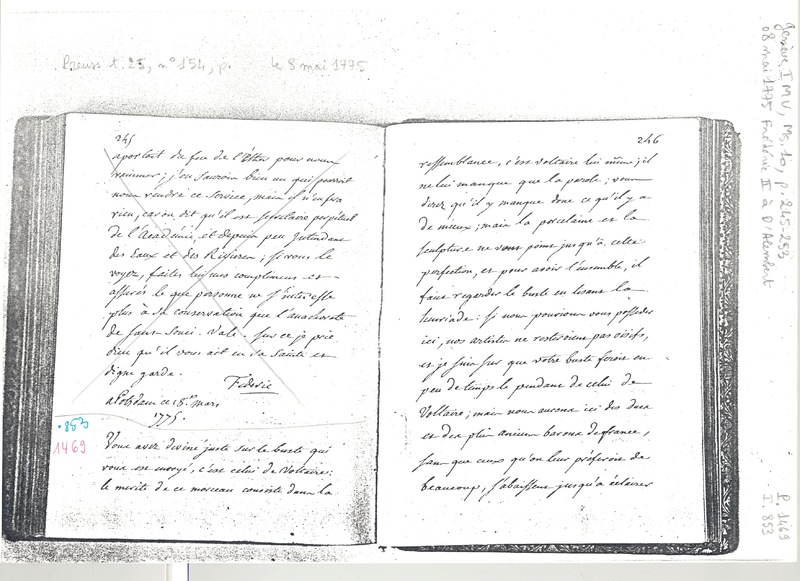 Preuss t. 25, n° 154, p.      le 8 mai 1775
Genève, IMV, Ms. 10, p. 245-253
08 mai 1775 Frédéric II à D'Alembert
245
apostat du feu de l'Ether pour nous
ranimer; j'en saurois bien un qui pourroit
nous rendre ce service, mais il n'en fera
rien, car on dit qu'il est secretaire perpétuel
de l'Academie, et depuis peu Intendant
des Eaux et des Rivieres; si vous le
voyez, faites lui mes complimens et
assurés le que personne ne s'interesse
plus à sa conservation que l'anachorete
de sans Souci. Vale. sur ce je prie
dieu qu'il vous ait en sa sainte et
digne garde.
Federic
a Potsdam ce 15. mars
1775.
.853
1469
Vous avez deviné juste sur le buste qui
vous est envoyé, c'est celui de Voltaire;
le merite de ce morceau consiste dans la
246
ressemblance, c'est Voltaire lui même; il
ne lui manque que la parole; vous
direz qu'il y manque donc ce qu'il y a
de mieux; mais la porcelaine et la
sculpture ne vont point jusqu'à cette
perfection, et pour avoir l'ensemble, il
faut regarder le buste en lisant la
henriade. Si nous pouvions vous posseder
ici, nos artistes ne resteroient pas oisifs,
et je suis sur que votre buste seroit en
peu de temps le pendant de celui de
Voltaire; mais nous aurons ici des ducs
et des plus anciens barons de france,
sans que ceux qu'on leur prefereroit de
beaucoup, s'abaissent jusqu'à éclairer
P. 1469
I. 853